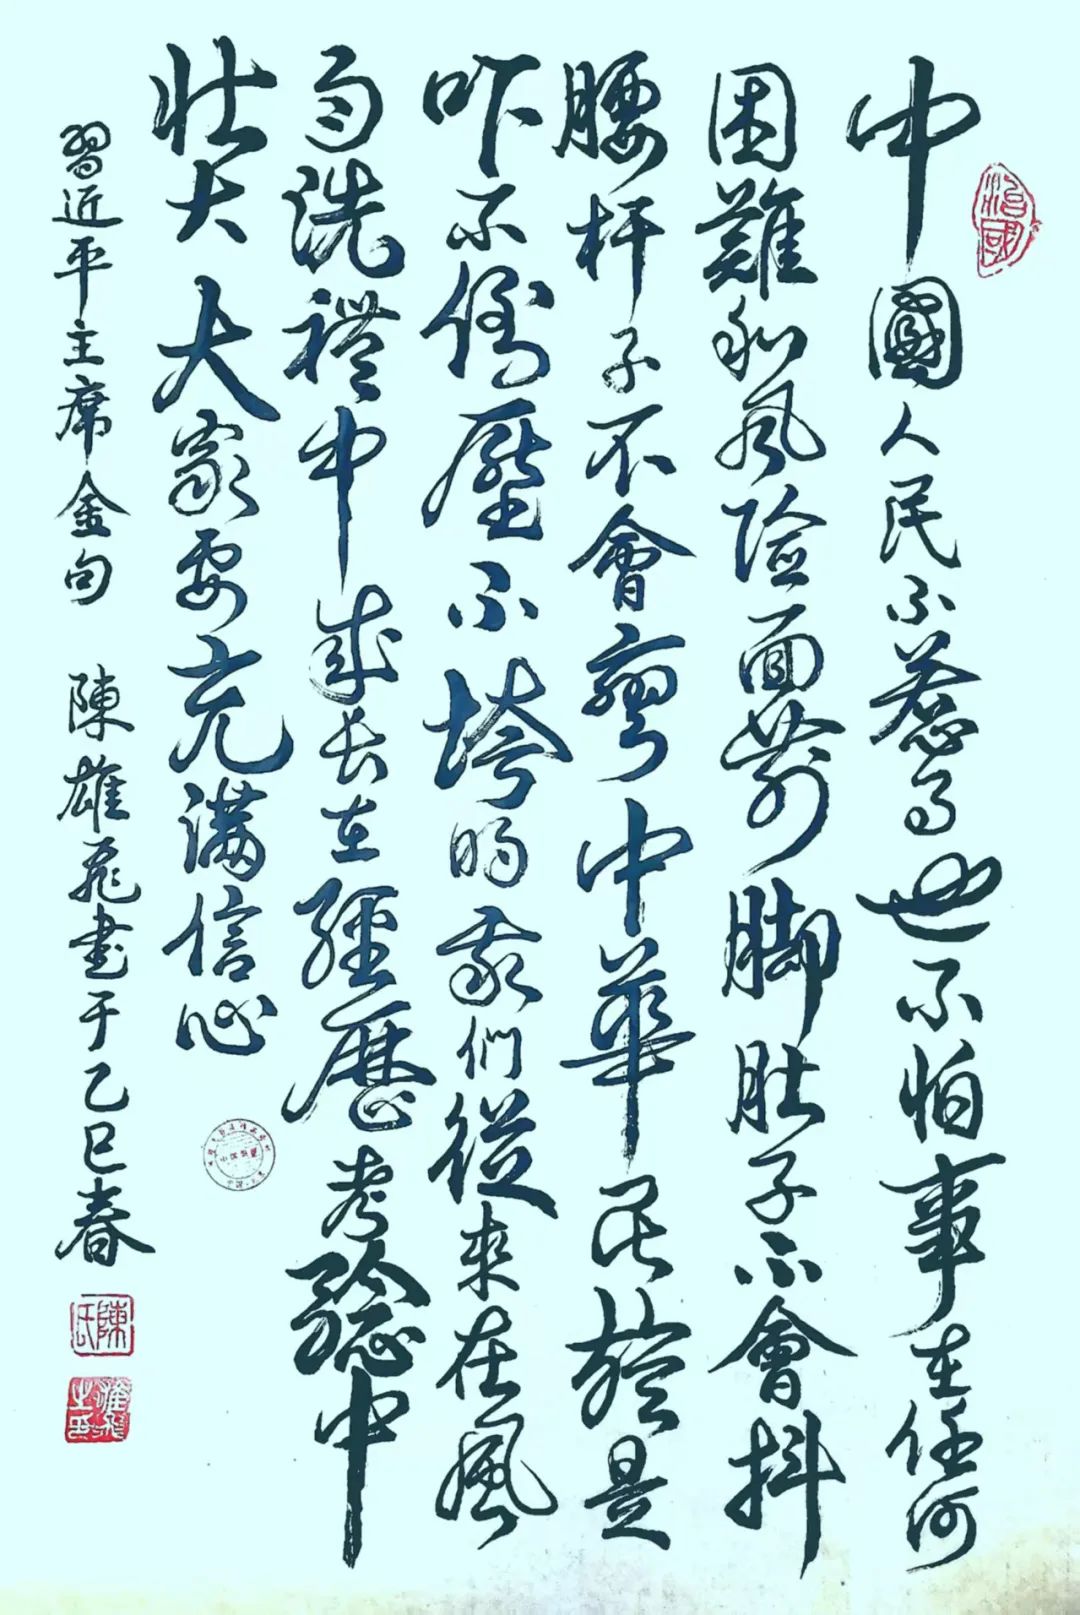 中國人民不惹事也不怕事在任何
困難和风险面前脚肚子不會抖
腰杆子不會彎中華民族是
吓不倒壓不垮的我們從來在風
雨洗禮中成长在經歷考驗中
壮大大家要充满信心
習近平主席金句 陳雄飛書于乙巳春
治國
陳氏
雄飛之印